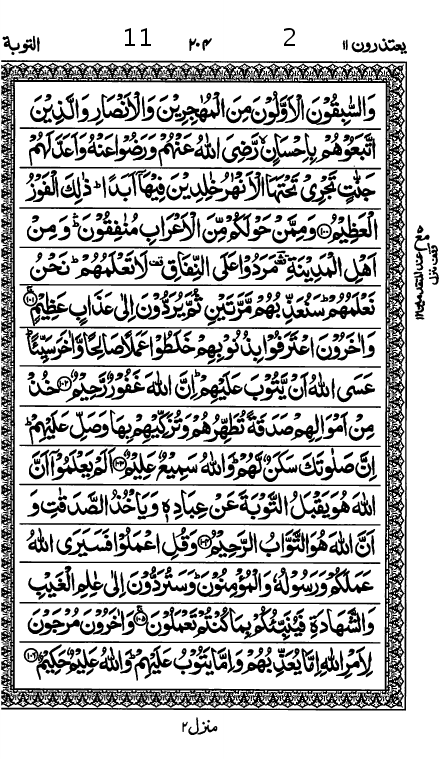 يعتذرون ١١ 2 ٢٠٤ 11 التوبة
وَالسّٰبِقُوْنَ الْاَوَّلُوْنَ مِنَ الْمُهٰجِرِيْنَ وَالْاَنْصَارِ وَالَّذِيْنَ
اتَّبَعُوْهُمْ بِاِحْسَانٍ ۙ رَّضِيَ اللّٰهُ عَنْهُمْ وَرَضُوْا عَنْهُ وَاَعَدَّ لَهُمْ
جَنّٰتٍ تَجْرِيْ تَحْتَهَا الْاَنْهٰرُ خٰلِدِيْنَ فِيْهَاۤ اَبَدًا ؕ ذٰلِكَ الْفَوْزُ
الْعَظِيْمُ ﴿١٠٠﴾ وَمِمَّنْ حَوْلَكُمْ مِّنَ الْاَعْرَابِ مُنٰفِقُوْنَ ۛؕ وَمِنْ
اَهْلِ الْمَدِيْنَةِ ۛؔ مَرَدُوْا عَلَى النِّفَاقِ ۫ لَا تَعْلَمُهُمْ ؕ نَحْنُ
نَعْلَمُهُمْ ؕ سَنُعَذِّبُهُمْ مَّرَّتَيْنِ ثُمَّ يُرَدُّوْنَ اِلٰى عَذَابٍ عَظِيْمٍ ﴿١٠١﴾
وَاٰخَرُوْنَ اعْتَرَفُوْا بِذُنُوْبِهِمْ خَلَطُوْا عَمَلًا صَالِحًا وَّاٰخَرَ سَيِّئًا ؕ
عَسَى اللّٰهُ اَنْ يَّتُوْبَ عَلَيْهِمْ ؕ اِنَّ اللّٰهَ غَفُوْرٌ رَّحِيْمٌ ﴿١٠٢﴾ خُذْ
مِنْ اَمْوَالِهِمْ صَدَقَةً تُطَهِّرُهُمْ وَتُزَكِّيْهِمْ بِهَا وَصَلِّ عَلَيْهِمْ ؕ
اِنَّ صَلٰوتَكَ سَكَنٌ لَّهُمْ ؕ وَاللّٰهُ سَمِيْعٌ عَلِيْمٌ ﴿١٠٣﴾ اَلَمْ يَعْلَمُوْۤا اَنَّ
اللّٰهَ هُوَ يَقْبَلُ التَّوْبَةَ عَنْ عِبَادِهٖ وَيَاْخُذُ الصَّدَقٰتِ وَ
اَنَّ اللّٰهَ هُوَ التَّوَّابُ الرَّحِيْمُ ﴿١٠٤﴾ وَقُلِ اعْمَلُوْا فَسَيَرَى اللّٰهُ
عَمَلَكُمْ وَرَسُوْلُهٗ وَالْمُؤْمِنُوْنَ ؕ وَسَتُرَدُّوْنَ اِلٰى عٰلِمِ الْغَيْبِ
وَالشَّهَادَةِ فَيُنَبِّئُكُمْ بِمَا كُنْتُمْ تَعْمَلُوْنَ ﴿١٠٥﴾ وَاٰخَرُوْنَ مُرْجَوْنَ
لِاَمْرِ اللّٰهِ اِمَّا يُعَذِّبُهُمْ وَاِمَّا يَتُوْبُ عَلَيْهِمْ ؕ وَاللّٰهُ عَلِيْمٌ حَكِيْمٌ ﴿١٠٦﴾
منزل ٢